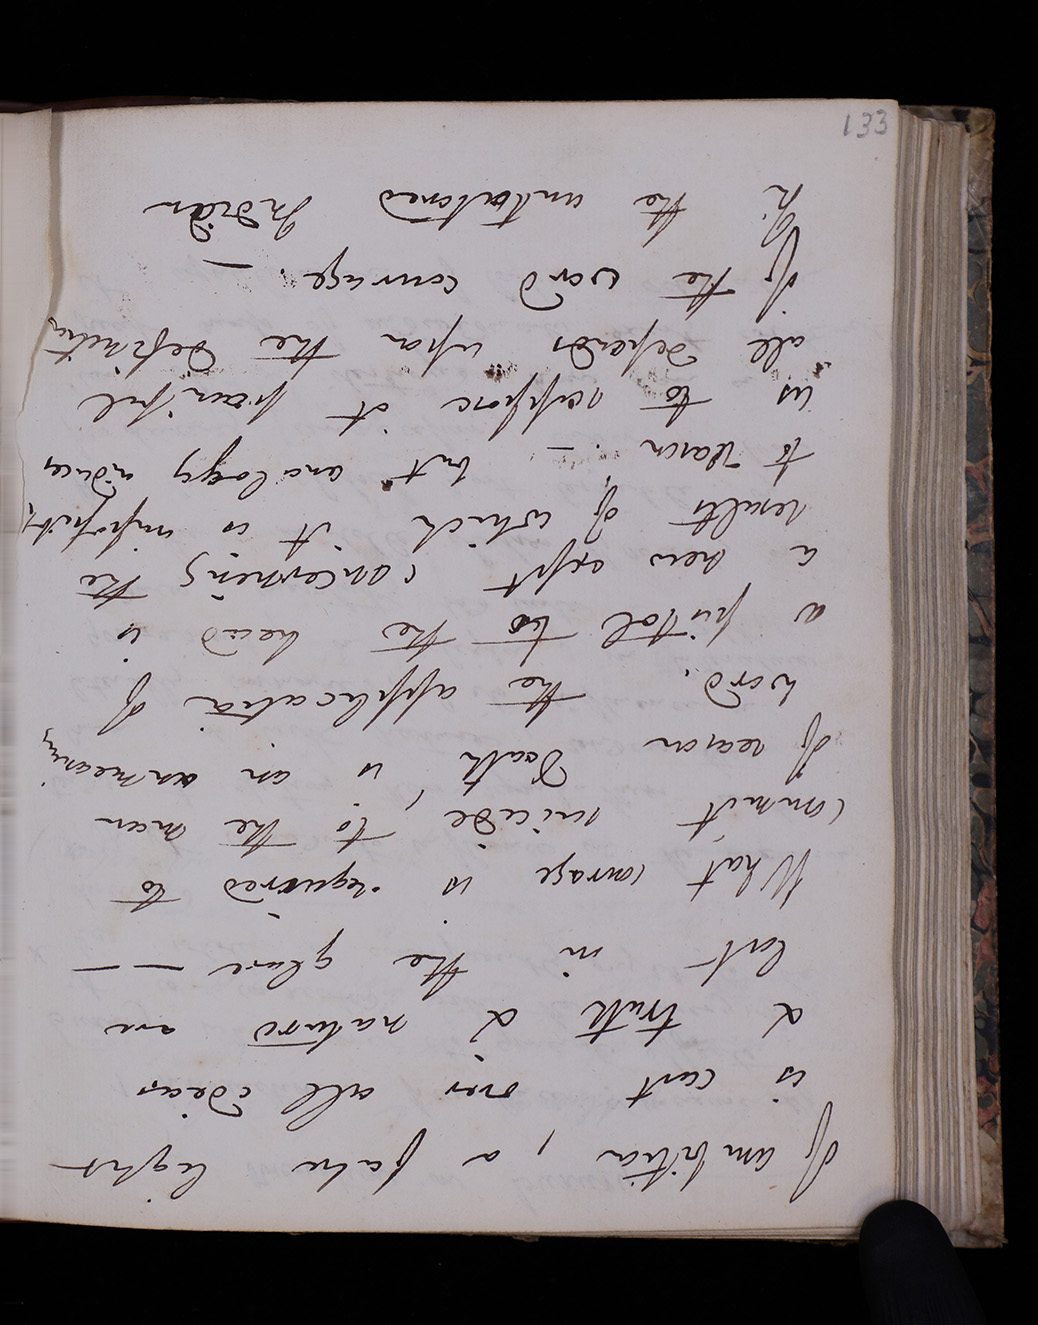 133
of ambition, a false light
is cast over all ideas
& truth & nature are
lost in the glare — —
What courage is required to
commit suicide, to the man
of reason Death is an unmeaning
word. the application of
a pistol to the head is
a new expt concerning the
results of which it is impossible
to reason. — but analogy induces
us to suppose it painful
all depends upon the definition
of the word courage. —
If. the untutored Indian